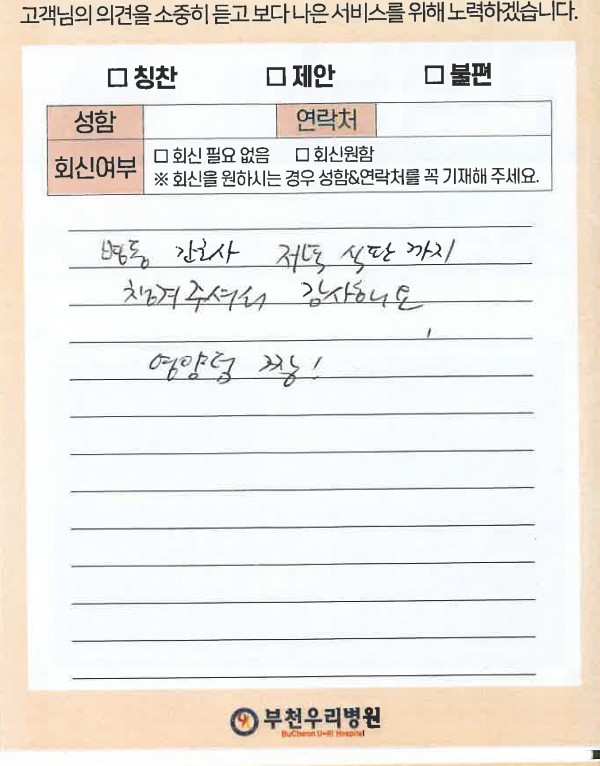 고객님의 의견을 소중히 듣고 보다 나은 서비스를 위해 노력하겠습니다.
□ 칭찬 □ 제안 □ 불편
성함 연락처
회신여부 □ 회신 필요 없음 □ 회신원함
※ 회신을 원하시는 경우 성함&연락처를 꼭 기재해 주세요.
병동 간호사 저녁 식단 까지
챙겨주셔서 감사합니다
영양팀 짱!
부천우리병원
BuCheon U-Ri Hospital